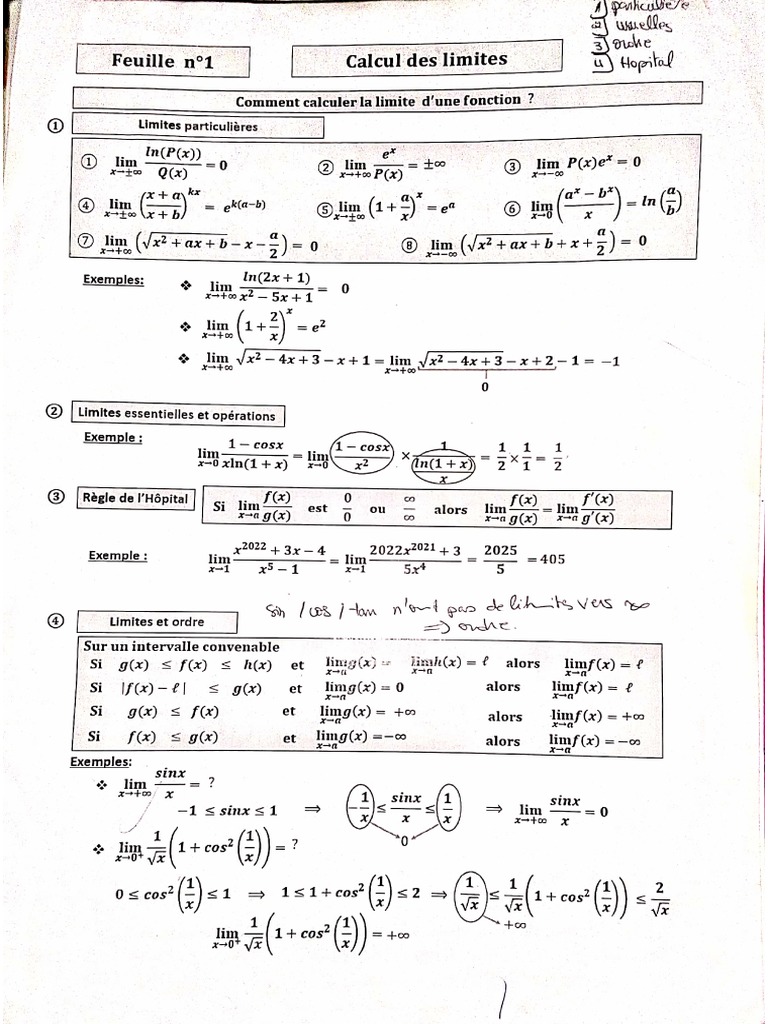 1) particulière
2) usuelles
3) ordre
4) Hopital
Feuille n°1
Calcul des limites
Comment calculer la limite d'une fonction ?
① Limites particulières
① lim x→±∞ ln(P(x))/Q(x) = 0 ② lim x→+∞ e^x/P(x) = ±∞ ③ lim x→−∞ P(x)e^x = 0
④ lim x→±∞ ((x + a)/(x + b))^kx = e^k(a−b) ⑤ lim x→±∞ (1 + a/x)^x = e^a ⑥ lim x→0 ((a^x − b^x)/x) = ln(a/b)
⑦ lim x→+∞ (√(x² + ax + b) − x − a/2) = 0 ⑧ lim x→−∞ (√(x² + ax + b) + x + a/2) = 0
Exemples: ❖ lim x→+∞ ln(2x + 1)/(x² − 5x + 1) = 0
❖ lim x→+∞ (1 + 2/x)^x = e²
❖ lim x→+∞ √(x² − 4x + 3) − x + 1 = lim x→+∞ √(x² − 4x + 3) − x + 2 − 1 = −1
0
② Limites essentielles et opérations
Exemple :
lim x→0 (1 − cosx)/(xln(1 + x)) = lim x→0 (1 − cosx)/x² × 1/(ln(1 + x)/x) = 1/2 × 1/1 = 1/2
③ Règle de l'Hôpital Si lim x→a f(x)/g(x) est 0/0 ou ∞/∞ alors lim x→a f(x)/g(x) = lim x→a f'(x)/g'(x)
Exemple : lim x→1 (x^2022 + 3x − 4)/(x^5 − 1) = lim x→1 (2022x^2021 + 3)/(5x^4) = 2025/5 = 405
sin / cos / tan n'ont pas de limites vers ∞
⇒ ordre.
④ Limites et ordre
Sur un intervalle convenable
Si g(x) ≤ f(x) ≤ h(x) et lim x→a g(x) = lim x→a h(x) = ℓ alors lim x→a f(x) = ℓ
Si |f(x) − ℓ| ≤ g(x) et lim x→a g(x) = 0 alors lim x→a f(x) = ℓ
Si g(x) ≤ f(x) et lim x→a g(x) = +∞ alors lim x→a f(x) = +∞
Si f(x) ≤ g(x) et lim x→a g(x) = −∞ alors lim x→a f(x) = −∞
Exemples:
❖ lim x→+∞ sinx/x = ?
−1 ≤ sinx ≤ 1 ⇒ −1/x ≤ sinx/x ≤ 1/x ⇒ lim x→+∞ sinx/x = 0
0
❖ lim x→0⁺ 1/√x (1 + cos²(1/x)) = ?
0 ≤ cos²(1/x) ≤ 1 ⇒ 1 ≤ 1 + cos²(1/x) ≤ 2 ⇒ 1/√x ≤ 1/√x (1 + cos²(1/x)) ≤ 2/√x
+∞
lim x→0⁺ 1/√x (1 + cos²(1/x)) = +∞